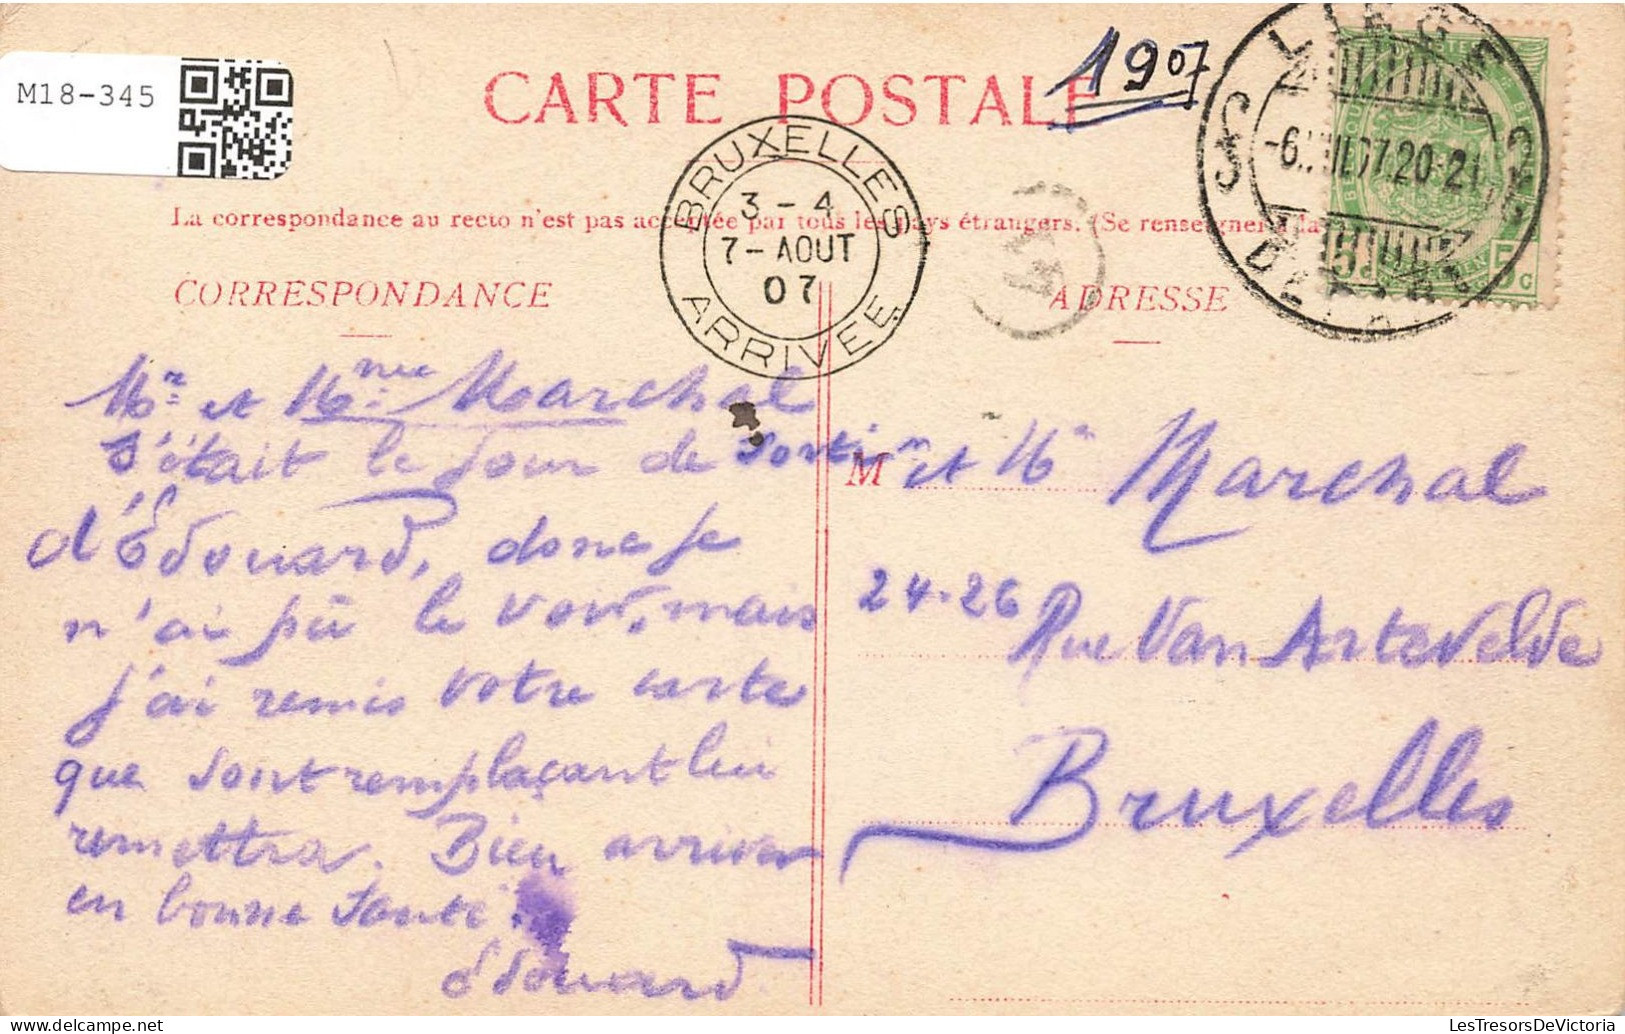 M18-345
1907
CARTE POSTALE
LIEGE
-6. 07.20-21
DEPART
5c 5c
BRUXELLES
3 - 4
7 - AOUT
07
ARRIVEE
La correspondance au recto n'est pas acceptée par tous les pays étrangers. (Se renseigner à la
CORRESPONDANCE
ADRESSE
Mr et Mme Marchal
s'était le jour de sortie
d'Edouard, donc je
n'ai pû le voir, mais
j'ai remis votre carte
que sont remplaçant lui
remettra. Bien arriver
en bonne santé.
Edouard
Mr et Me Marchal
24-26 Rue Van Artevelde
Bruxelles
LesTresorsDeVictoria